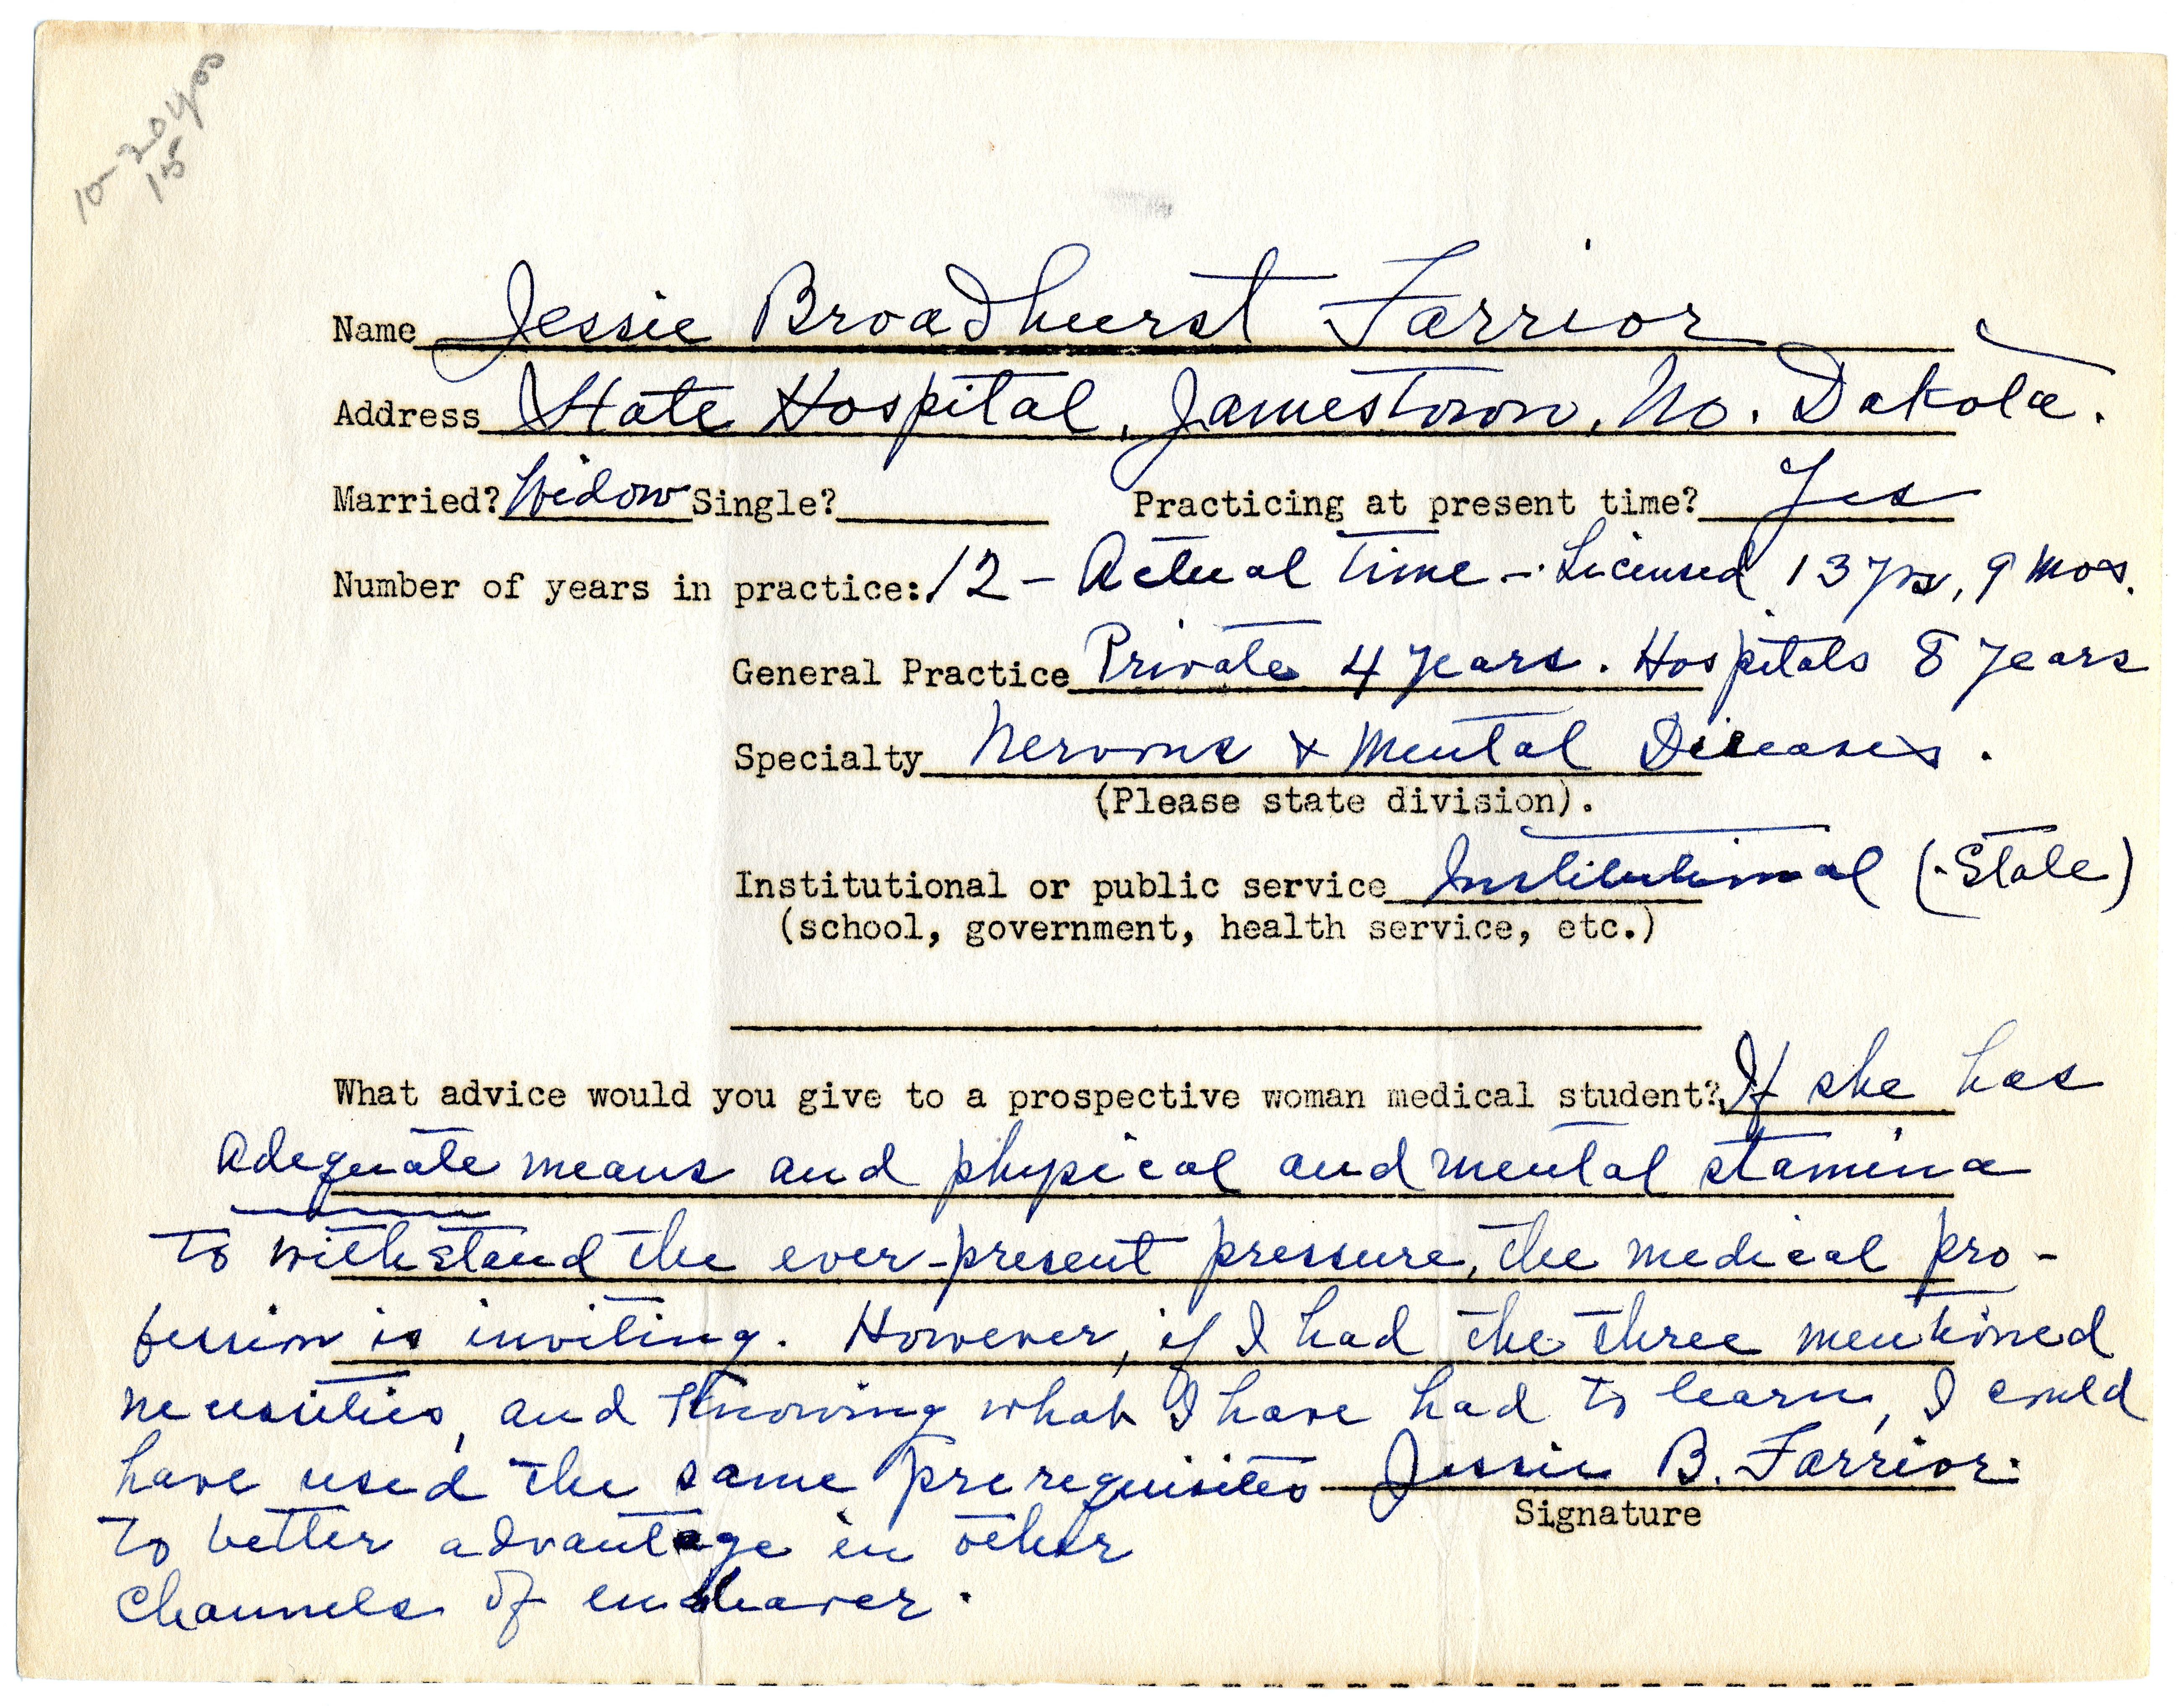 10-204
15
Name Jessie Broadhurst Farrior
Address State Hospital, Jamestown, No. Dakota.
Married? Widow Single? Practicing at present time? Yes
Number of years in practice: 12 - Actual Time - Licensed 13 yrs, 9 mos.
General Practice Private 4 years. Hospitals 8 years
Specialty Nervous & Mental Diseases.
(Please state division).
Institutional or public service Institutional (State)
(school, government, health service, etc.)
What advice would you give to a prospective woman medical student? If she has
adequate means and physical and mental stamina
to withstand the ever-present pressure, the medical pro-
fession is inviting. However, if I had the three mentioned
necessities, and knowing what I have had to learn, I could
have used the same prerequisites Jessie B. Farrior.
Signature
to better advantage in other
channels of endeavor.